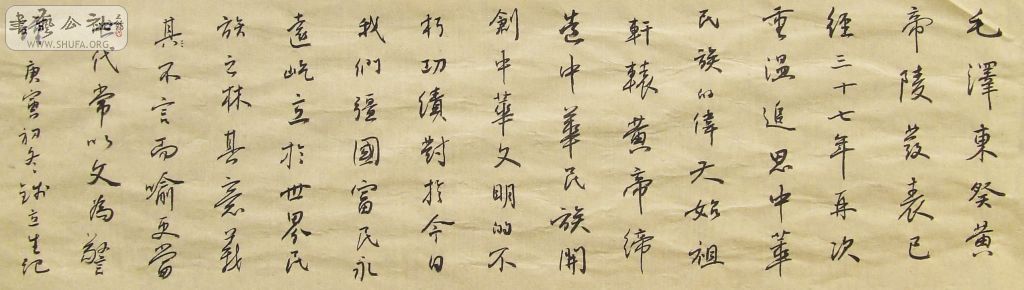 毛澤東祭黃
帝陵發表已
經三十七年再次
重溫追思中華
民族的偉大始祖
軒轅黃帝締
造中華民族開
創中華文明的不
朽功績對於今日
我們疆國富民永
遠屹立於世界民
族之林其意義
其不言而喻更當
代常以文為警
庚寅初冬 立生記
書藝公社
WWW.SHUFA.ORG